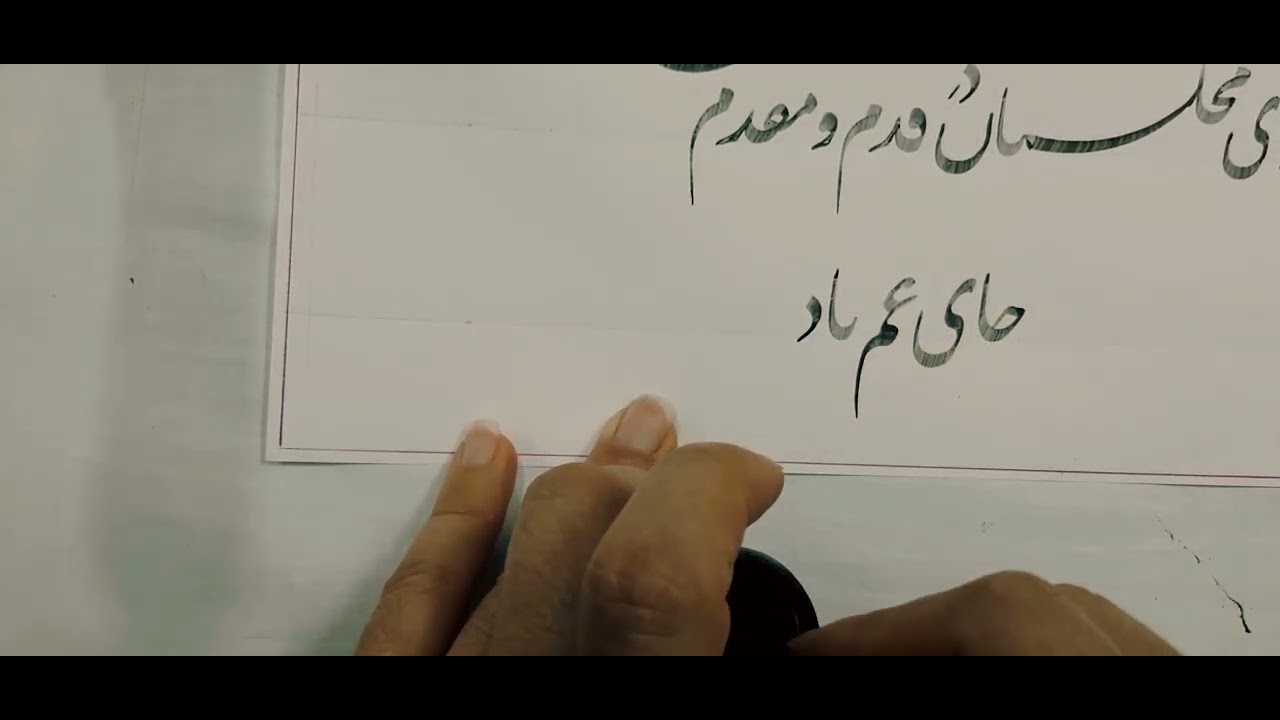 مجلسیان در قدم و مقدم
جای غم باد